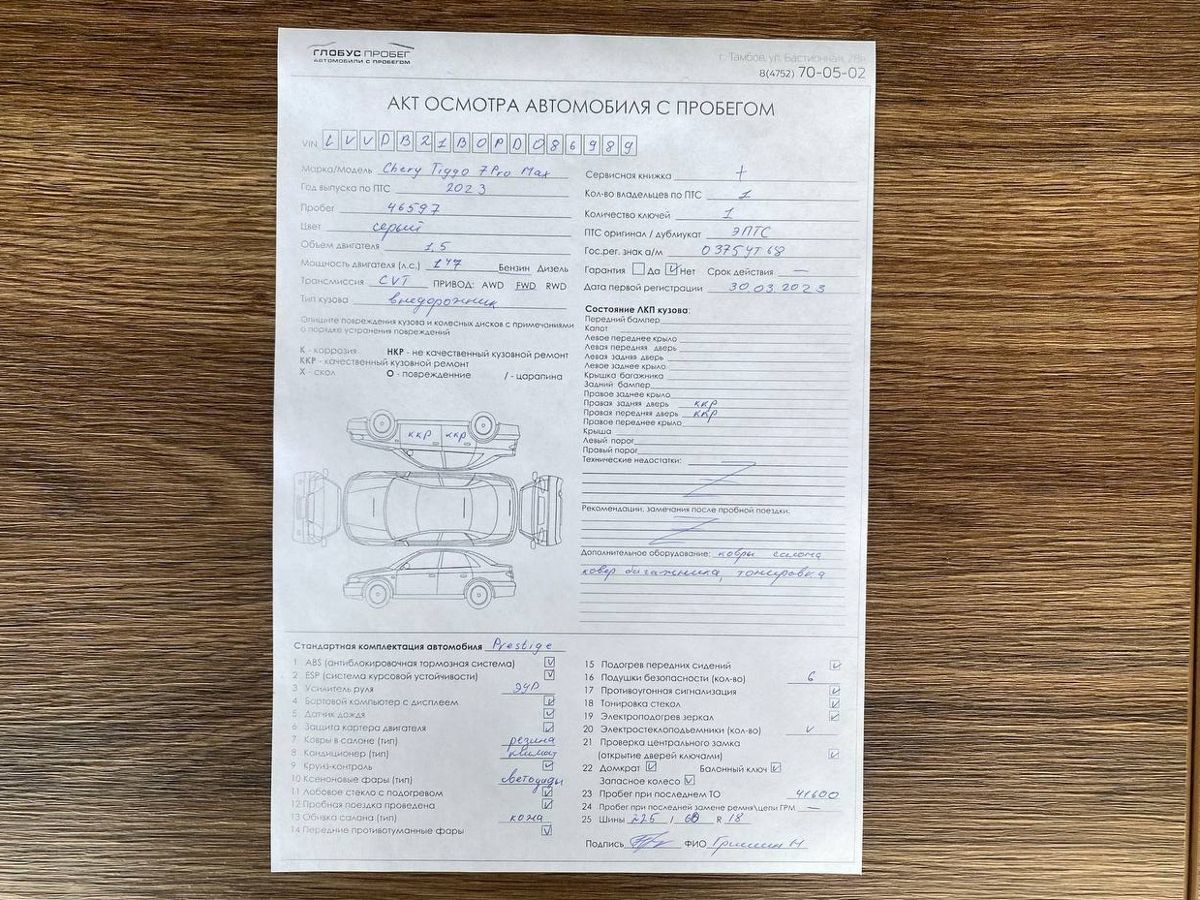 ГЛОБУС ПРОБЕГ
АВТОМОБИЛИ С ПРОБЕГОМ
г. Тамбов, ул. Бастионная,
8(4752) 70-05-02
АКТ ОСМОТРА АВТОМОБИЛЯ С ПРОБЕГОМ
VIN LVVDB21B0PD086989
Марка/Модель Chery Tiggo 7 Pro Max
Год выпуска по ПТС 2023
Пробег 46597
Цвет серый
Объем двигателя 1,5
Мощность двигателя (л.с.) 147 Бензин Дизель
Трансмиссия CVT ПРИВОД: AWD FWD RWD
Тип кузова внедорожник
Сервисная книжка +
Кол-во владельцев по ПТС 1
Количество ключей 1
ПТС оригинал / дубликат ЭПТС
Гос.рег. знак а/м О375УТ68
Гарантия Да Нет Срок действия —
Дата первой регистрации 30.03.2023
Опишите повреждения кузова и колесных дисков с примечаниями
о порядке устранения повреждений
К - коррозия НКР - не качественный кузовной ремонт
ККР - качественный кузовной ремонт
Х - скол О - повреждение / - царапина
ккр ккр
Состояние ЛКП кузова:
Передний бампер
Капот
Левое переднее крыло
Левая передняя дверь
Левая задняя дверь
Левое заднее крыло
Крышка багажника
Задний бампер
Правое заднее крыло
Правая задняя дверь ккр
Правая передняя дверь ккр
Правое переднее крыло
Крыша
Левый порог
Правый порог
Технические недостатки:
Рекомендации, замечания после пробной поездки:
Дополнительное оборудование: ковры салона
ковер багажника, тонировка
Стандартная комплектация автомобиля Prestige
1 ABS (антиблокировочная тормозная система)
2 ESP (система курсовой устойчивости)
3 Усилитель руля ЭУР
4 Бортовой компьютер с дисплеем
5 Датчик дождя
6 Защита картера двигателя
7 Ковры в салоне (тип) резина
8 Кондиционер (тип) климат
9 Круиз-контроль
10 Ксеноновые фары (тип) светодиды
11 Лобовое стекло с подогревом
12 Пробная поездка проведена
13 Обивка салона (тип) кожа
14 Передние противотуманные фары
15 Подогрев передних сидений
16 Подушки безопасности (кол-во) 6
17 Противоугонная сигнализация
18 Тонировка стекол
19 Электроподогрев зеркал
20 Электростеклоподъемники (кол-во) V
21 Проверка центрального замка
(открытие дверей ключами)
22 Домкрат Балонный ключ
Запасное колесо
23 Пробег при последнем ТО 41600
24 Пробег при последней замене ремня\цепи ГРМ —
25 Шины 225 / 60 R 18
Подпись ФИО Гришин Н